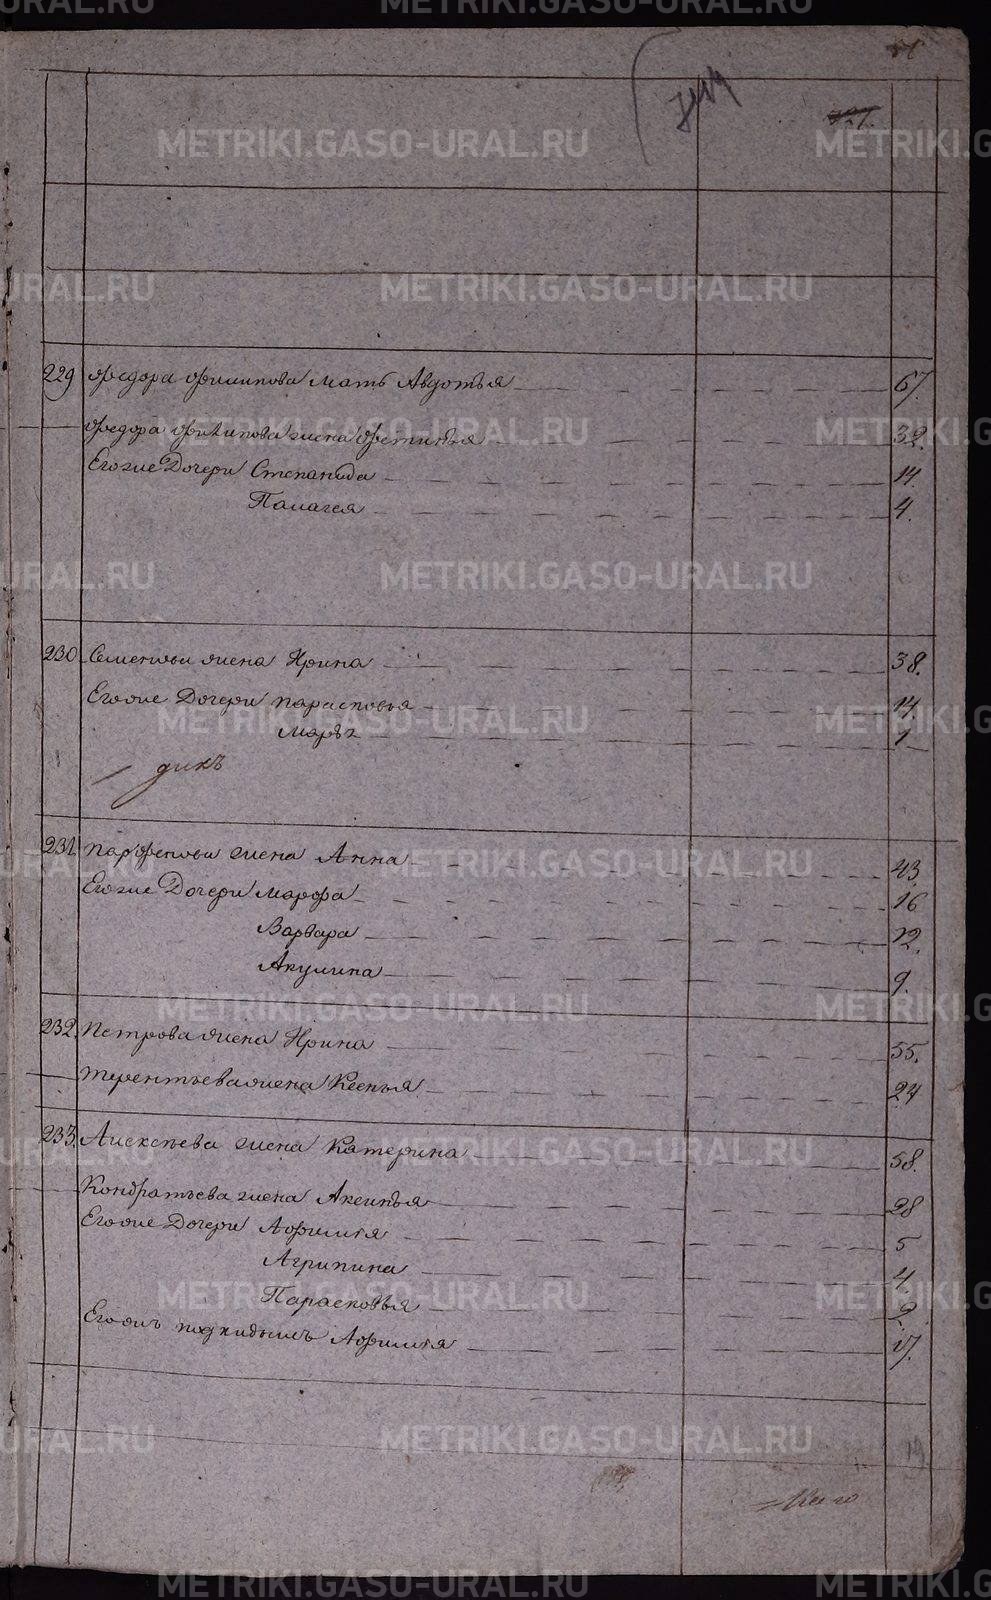 229 Федора Филипова мать Авдотья 67.
Федора Филипова жена Фетинья 32.
Егоже Дочери Степанида 14.
Палагея 4.
230 Семенова жена Ирина 38.
Егоже Дочери Парасковья 14.
Марья 1
231 Парфенова жена Анна 43.
Егоже Дочери Марфа 16
Варвара 12.
Акулина 9.
232. Петрова жена Ирина 55.
Терентьева жена Ксенья 24
233. Алексеева жена Катерина 58.
Кондратьева жена Аксинья 28
Егоже Дочери Афимья 5
Агрипина 4.
Парасковья 2.
Егожъ подкидышъ Афимья 17.
METRIKI.GASO-URAL.RU